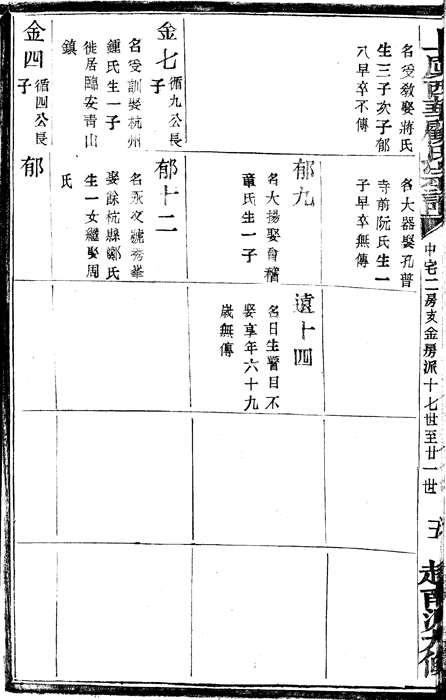 上虞西華顧氏宗譜
中宅二房支金房派十七世至廿一世
五
名受教娶蔣氏
生三子次子郁
八早卒不傳
名大器娶孔普
寺前阮氏生一
子早卒無傳
郁九
名大揚娶會稽
章氏生一子
遠十四
名日生瞽目不
娶享年六十九
歲無傳
金七 循九公長
子
名受訓娶杭州
鍾氏生一子
徙居臨安青山
鎮
郁十二
名永文號秀峯
娶餘杭縣鄭氏
生一女繼娶周
氏
金四 循四公長
子
郁